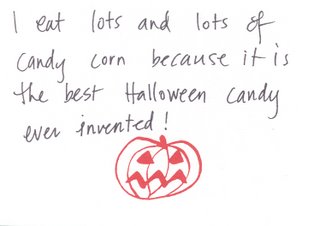 I eat lots and lots of
candy corn because it is
the best Halloween candy
ever invented!